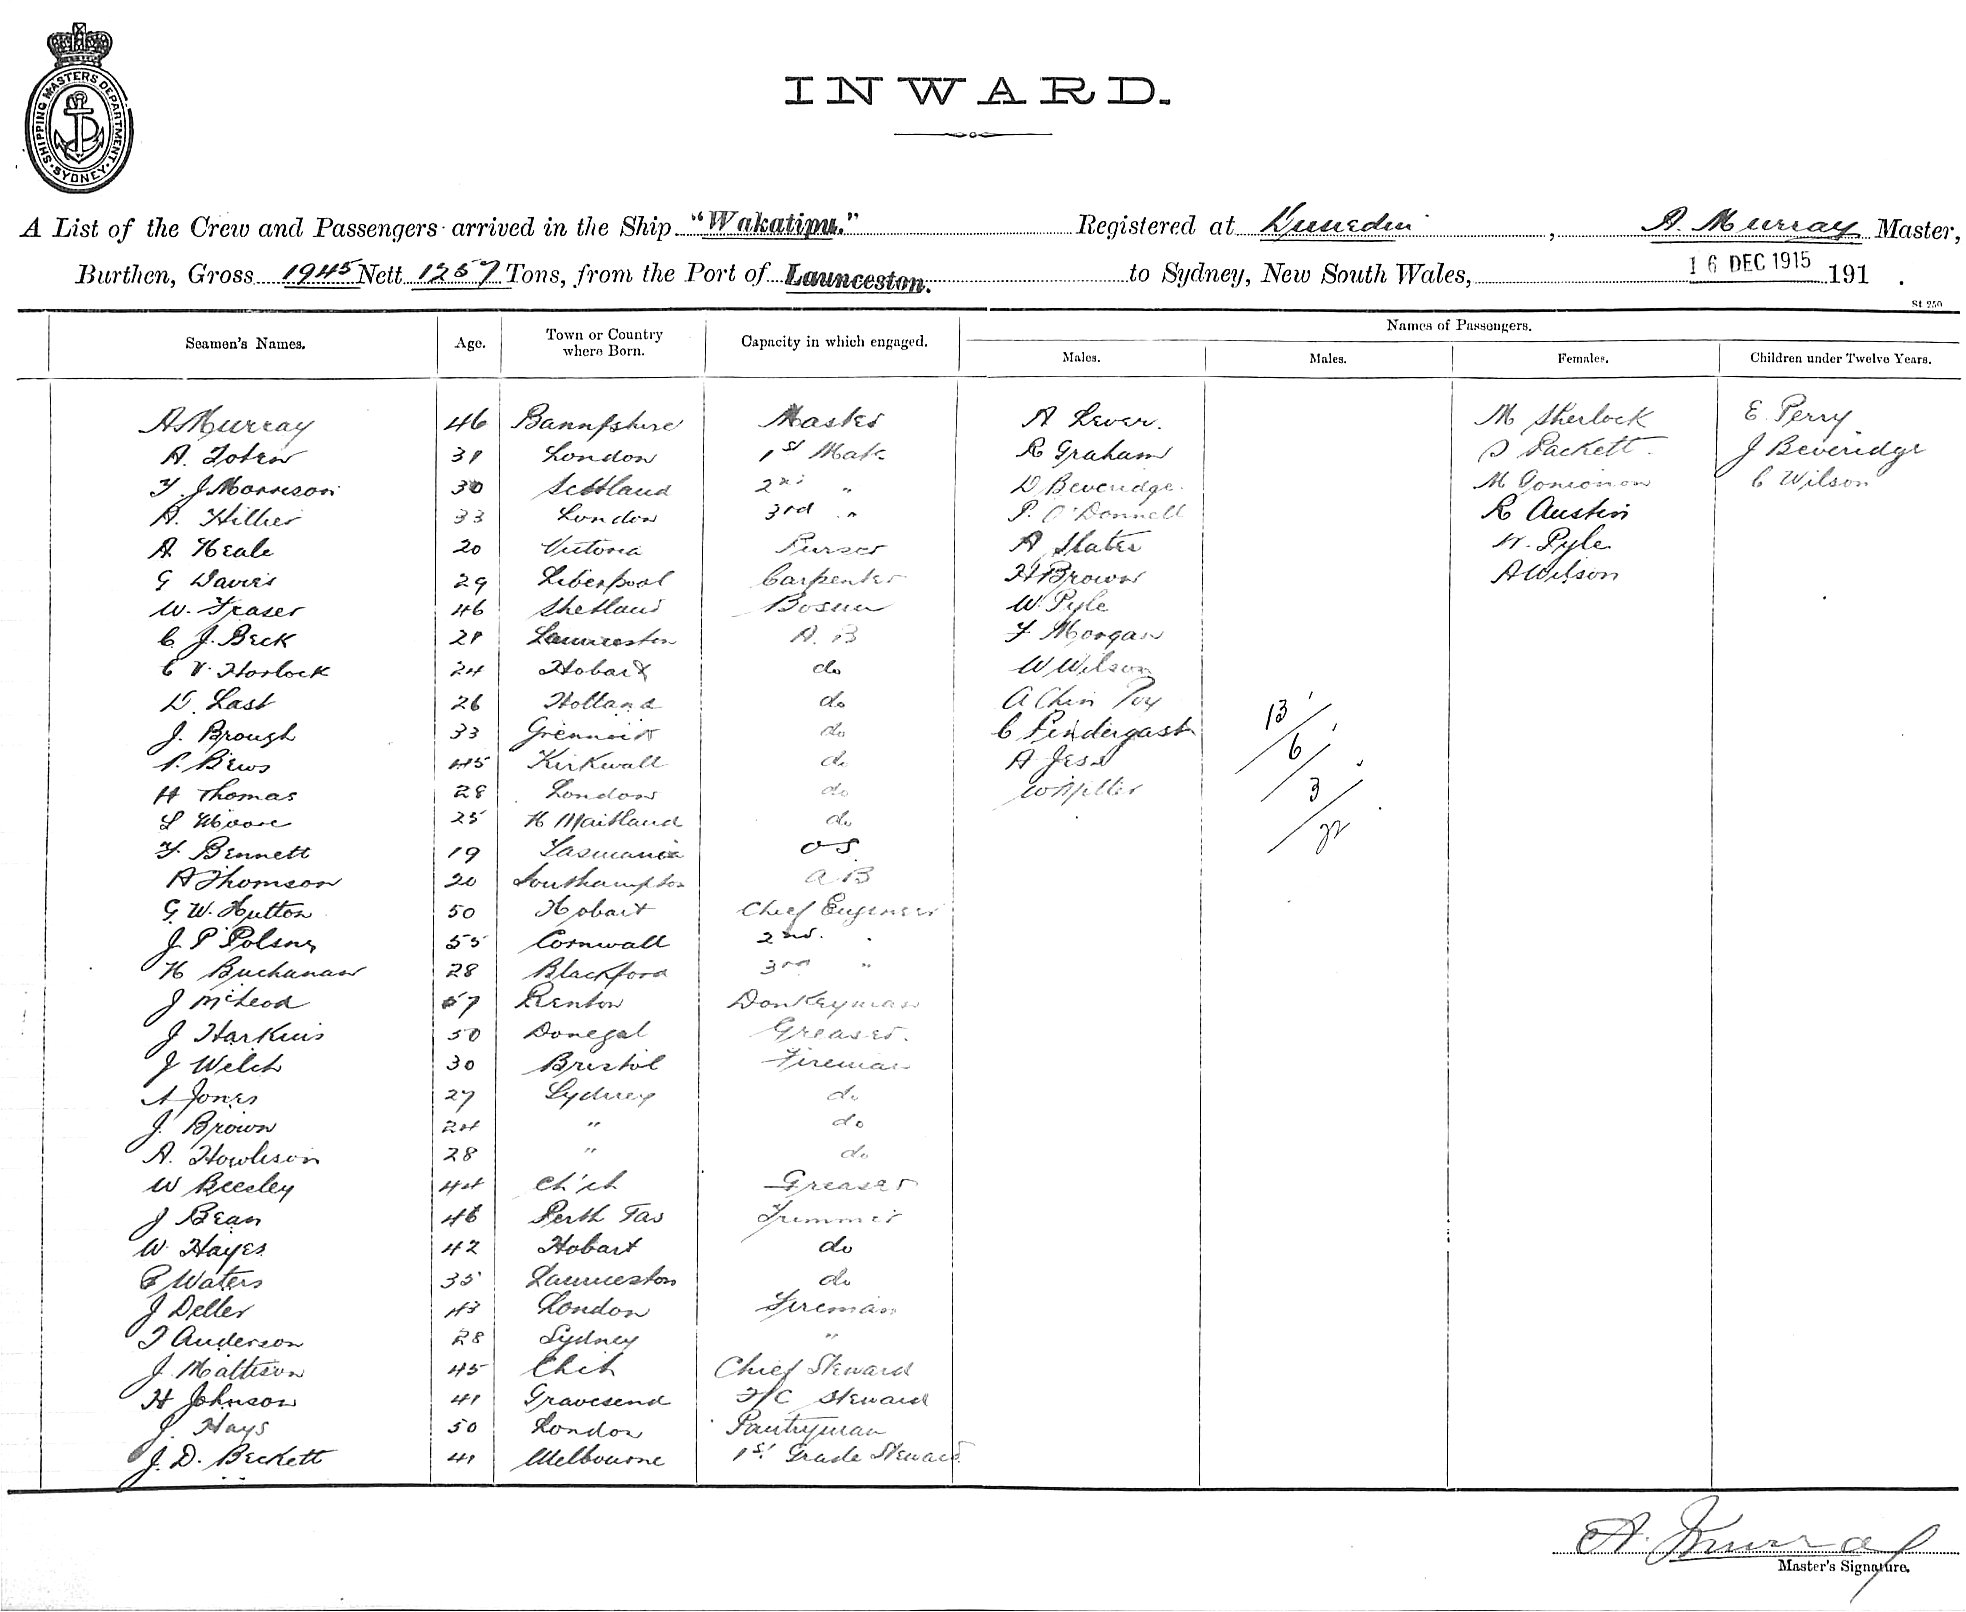 SHIPPING MASTERS DEPARTMENT · SYDNEY ·
INWARD.
A List of the Crew and Passengers arrived in the Ship "Wakatipu." Registered at Dunedin, A. Murray Master,
Burthen, Gross 1945 Nett 1257 Tons, from the Port of Launceston. to Sydney, New South Wales, 16 DEC 1915 191 .
St 250
Names of Passengers.
Seamen's Names. Age. Town or Country where Born. Capacity in which engaged. Males. Males. Females. Children under Twelve Years.
A Murray 46 Bannfshire Master A Lever. M Sherlock E Perry
A. 31 London 1st Mate R Graham Packett. J Beveridge
F. J Morrison 30 Scotland 2nd " D Beveridge. M C Wilson
A. Hillier 33 London 3rd " P. O'Donnell R Austin
A Neale 20 Victoria Purser A Slater Pyle
G Davies 29 Liverpool Carpenter H Brown A Wilson
W. Fraser 46 Shetland Bosun W. Pyle
C J. Beck 21 Launceston A. B F Morgan
C V. Horlock 24 Hobart do W Wilson
D. Last 26 Holland do A Chin Poy
J. Brough 33 do C Pendergast 13
P. Bews 45 Kirkwall do A Jess 6
H Thomas 28 London do W Miller 3
L Moore 25 Maitland do 22
F. Bennett 19 Tasmania OS.
A Thomson 20 Southampton A B
G. W. Hutton 50 Hobart Chief Engineer
J. P 55 Cornwall 2nd. "
H Buchanan 28 Blackford 3rd "
J McLeod 57 Renton Donkeyman
J Harkins 50 Donegal Greaser.
J Welch 30 Bristol Fireman
A Jones 27 Sydney do
J. Brown 24 " do
A. Howieson 28 " do
W Beesley 44 Ch'ch Greaser
J Bean 46 Perth Tas Trimmer
W. Hayes 42 Hobart do
C Waters 35 Launceston do
J Deller 43 London Fireman
J Anderson 28 Sydney "
J. Mattison 45 Chch Chief Steward
H Johnson 41 Gravesend F/C Steward
J. Hays 50 London Pantryman
J. D. Beckett 41 Melbourne 1st Grade Steward
A. Murray
Master's Signature.